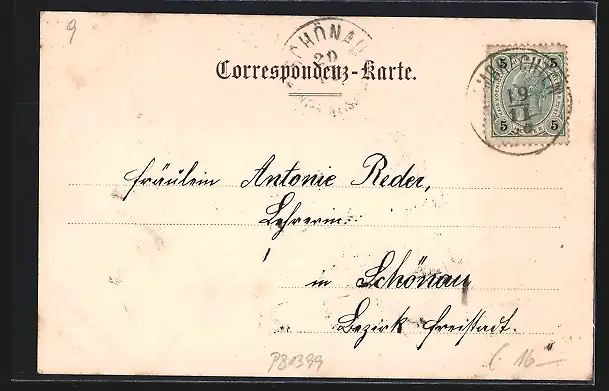 9
SCHÖNAU
20
Correspondenz-Karte.
5 5
19
11
5 5
Fräulein Antonie Reder,
Lehrerin
in Schönau
Bezirk Freistadt.
P81399
€ 16—